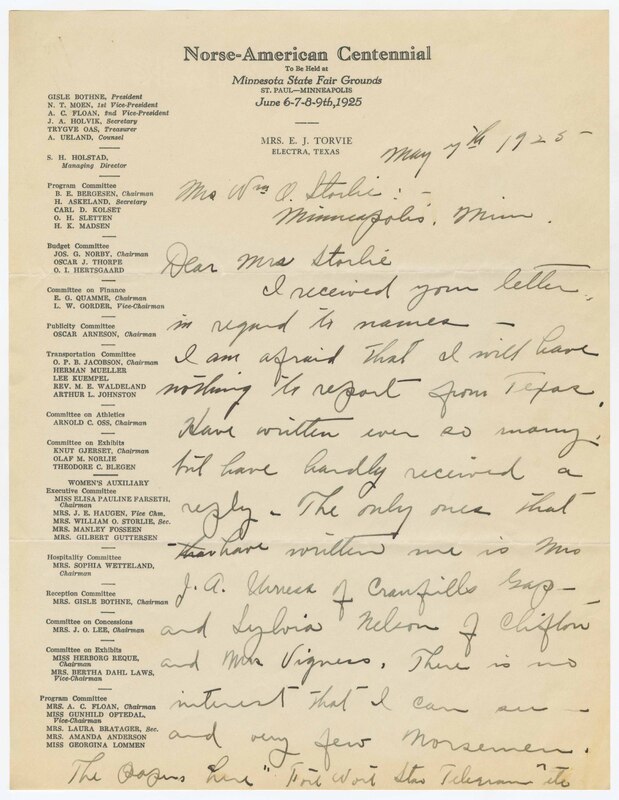 Norse-American Centennial
To Be Held at
Minnesota State Fair Grounds
ST. PAUL—MINNEAPOLIS
June 6-7-8-9th, 1925
MRS. E. J. TORVIE
ELECTRA, TEXAS
GISLE BOTHNE, President
N. T. MOEN, 1st Vice-President
A. C. FLOAN, 2nd Vice-President
J. A. HOLVIK, Secretary
TRYGVE OAS, Treasurer
A. UELAND, Counsel
S. H. HOLSTAD,
Managing Director
Program Committee
B. E. BERGESEN, Chairman
H. ASKELAND, Secretary
CARL D. KOLSET
O. H. SLETTEN
H. K. MADSEN
Budget Committee
JOS. G. NORBY, Chairman
OSCAR J. THORPE
O. I. HERTSGAARD
Committee on Finance
E. G. QUAMME, Chairman
L. W. GORDER, Vice-Chairman
Publicity Committee
OSCAR ARNESON, Chairman
Transportation Committee
O. P. B. JACOBSON, Chairman
HERMAN MUELLER
LEE KUEMPEL
REV. M. E. WALDELAND
ARTHUR L. JOHNSTON
Committee on Athletics
ARNOLD C. OSS, Chairman
Committee on Exhibits
KNUT GJERSET, Chairman
OLAF M. NORLIE
THEODORE C. BLEGEN
WOMEN'S AUXILIARY
Executive Committee
MISS ELISA PAULINE FARSETH,
Chairman
MRS. J. E. HAUGEN, Vice Chm.
MRS. WILLIAM O. STORLIE, Sec.
MRS. MANLEY FOSSEEN
MRS. GILBERT GUTTERSEN
Hospitality Committee
MRS. SOPHIA WETTELAND,
Chairman
Reception Committee
MRS. GISLE BOTHNE, Chairman
Committee on Concessions
MRS. J. O. LEE, Chairman
Committee on Exhibits
MISS HERBORG REQUE,
Chairman
MRS. BERTHA DAHL LAWS,
Vice-Chairman
Program Committee
MRS. A. C. FLOAN, Chairman
MISS GUNHILD OFTEDAL,
Vice-Chairman
MRS. LAURA BRATAGER, Sec.
MRS. AMANDA ANDERSON
MISS GEORGINA LOMMEN
May 7th 1925
Mrs Wm O. Storlie : -
Minneapolis, Minn.
Dear Mrs Storlie
I received your letter,
in regard to names —
I am afraid that I will have
nothing to report from Texas.
Have written ever so many,
but have hardly received a
reply - The only ones that
have written me is Mrs
J. A. of Cranfills Gap —
and Sylvia Nelson of Clifton
and Mrs Vigness. There is no
interest that I can see —
and very few Norsemen.
The papers here "Fort Wort Star Telegram" etc